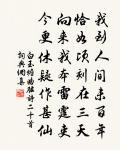 我別人間未百年
恰如頃刻在三天
向來我本雷霆吏
今更休疑作甚仙
白玉蟾曲肱詩二十首
詞典網集